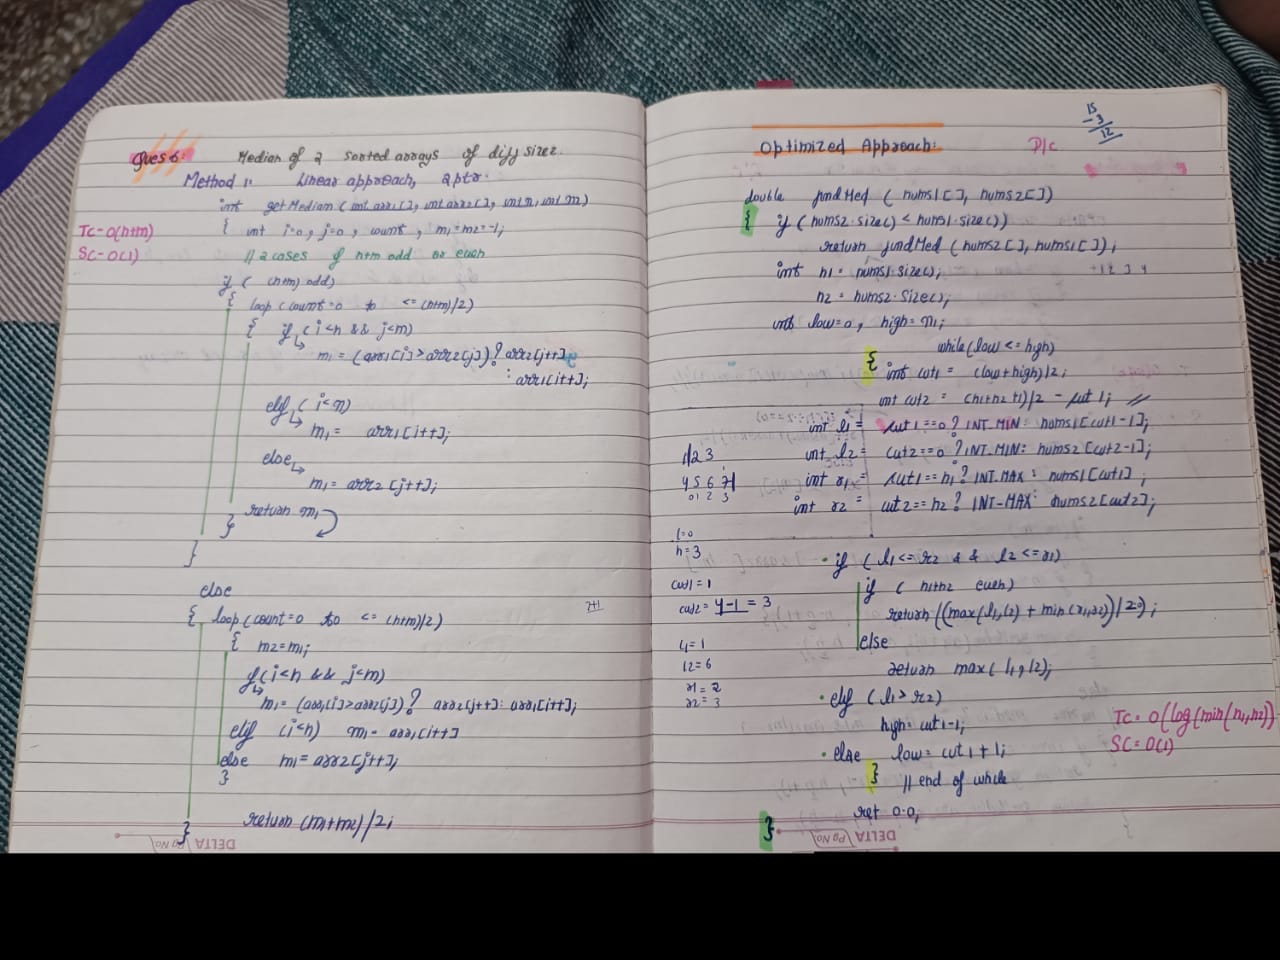 Ques 6: Median of 2 sorted arrays of diff sizes.
Method 1: Linear approach, 2 ptr.
int getMedian (int arr1[], int arr2[], int n, int m)
TC - O(n+m)
{ int i=0, j=0, count, m1=m2=-1;
SC - O(1)
// 2 cases if n+m odd or even
if ( (n+m) odd)
{ loop (count=0 to <= (n+m)/2)
{ if (i<n && j<m)
m1 = (arr1[i] > arr2[j])? arr2[j++]
: arr1[i++];
elif (i<n)
m1 = arr1[i++];
else
m1 = arr2[j++];
return m1
}
}
else
{ loop (count=0 to <= (n+m)/2)
{ m2=m1;
if (i<n && j<m)
m1 = (arr1[i]>arr2[j])? arr2[j++]: arr1[i++];
elif (i<n) m1 = arr1[i++]
else m1 = arr2[j++];
}
return (m1+m2)/2;
}
DELTA Pg No.
15
-3
12
Optimized Approach:
double findMed ( nums1[], nums2[])
{ if (nums2.size() < nums1.size())
return findMed (nums2[], nums1[]);
int n1 = nums1.size();
n2 = nums2.size();
int low=0, high=n1;
while (low <= high)
{ int cut1 = (low+high)/2;
int cut2 = (n1+n2+1)/2 - cut1; //
int l1 = cut1==0? INT_MIN: nums1[cut1-1];
int l2 = cut2==0? INT_MIN: nums2[cut2-1];
int r1 = cut1==n1? INT_MAX: nums1[cut1];
int r2 = cut2==n2? INT-MAX: nums2[cut2];
1 2 3
4 5 6 7
0 1 2 3
l=0
h=3
cut1=1
cut2= 4-1 = 3
l1=1
l2=6
r1=2
r2=3
• if (l1<=r2 && l2<=r1)
if ( n1+n2 even)
return((max(l1,l2) + min(r1,r2))/2.0);
else
return max(l1,l2);
• elif (l1>r2)
high=cut1-1;
• else low=cut1+1;
TC= O(log(min(n1,n2))
SC= O(1)
} // end of while
ret 0.0;
}
DELTA Pg No.